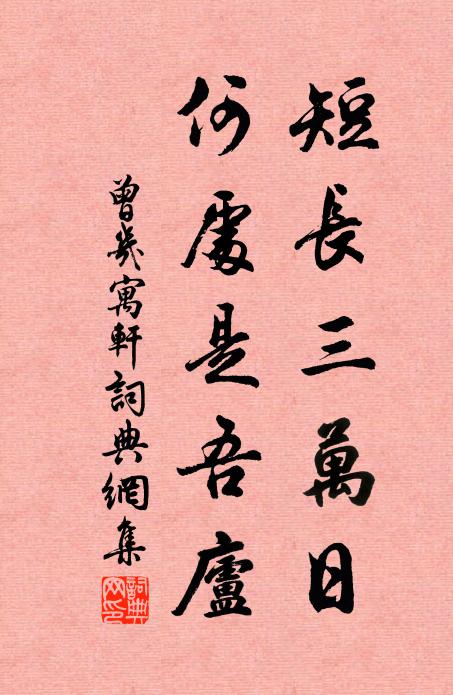 短長三萬日
何處是吾廬
曾幾寓軒詞典網集
詞典網印